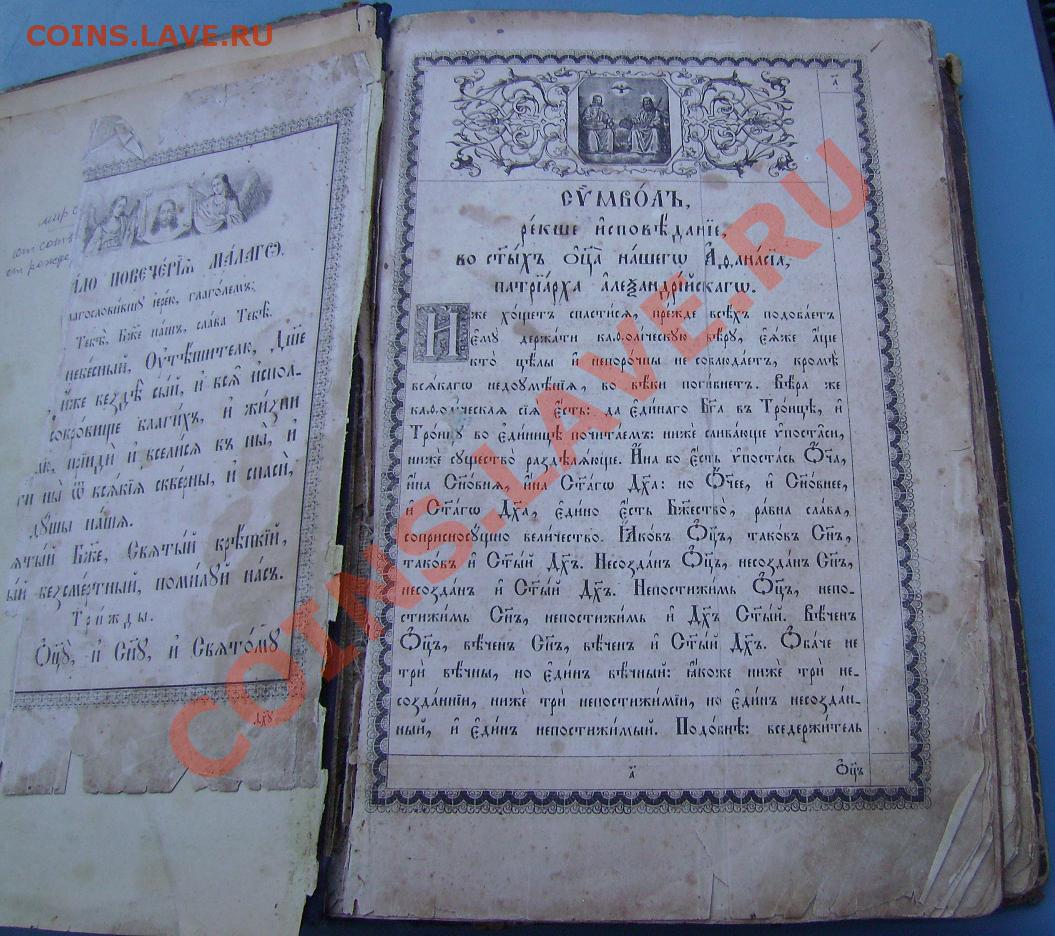 COINS.LAVE.RU
мир с
от рожде
АЛО ПОВЕЧЕ́РІѦ МА́ЛАГѠ.
лагословившу іере́ю, глаго́лемъ:
Тебѣ̀, Бж҃е на́шъ, сла́ва Тебѣ̀.
небе́сный, Оутѣ́шителю, Дш҃е
и҆́же вездѣ̀ сы́й, и҆ всѧ̑ и҆спол-
сокро́вище благи́хъ, и҆ жи́зни
лю, прїидѝ и҆ всели́сѧ въ ны̀, и҆
ти ны̀ ѿ всѧ́кїѧ скве́рны, и҆ спасѝ,
дꙋ́шы на́шѧ.
ѧты́й Бж҃е, Свѧты́й крѣ́пкїй,
ый безсме́ртный, поми́лꙋй на́съ.
Три́жды.
Ѻ҆ц҃ꙋ̀, и҆ Сн҃ꙋ, и҆ Свѧто́мꙋ
дх҃ꙋ
а҃
СѴМВО́ЛЪ,
ре́кше и҆сповѣ́данїе,
во ст҃ы́хъ ѻ҆ц҃а̀ на́шегѡ А҆ѳана́сїа,
патрїа́рха а҆леѯандрі́йскагѡ.
И҆́же хо́щетъ спасти́сѧ, пре́жде всѣ́хъ подоба́етъ
є҆мꙋ̀ держа́ти каѳоли́ческꙋю вѣ́рꙋ, є҆ѧ́же а҆́ще
кто̀ цѣ́лы и҆ непоро́чны не соблюда́етъ, кромѣ̀
всѧ́кагѡ недоꙋмѣ́нїѧ, во вѣ́ки поги́бнетъ. Вѣ́ра же
каѳоли́ческаѧ сїѧ̀ є҆́сть: да є҆ди́наго Бг҃а въ Тро́ицѣ, и҆
Тро́ицꙋ во є҆ди́ницѣ почита́емъ: нижѐ слива́юще ѵ҆поста̑си,
нижѐ сꙋщество̀ раздѣлѧ́юще. И҆́на бо є҆́сть ѵ҆поста́сь Ѻ҆́ч҃а,
и҆́на Сн҃о́внѧѧ, и҆́на Ст҃а́гѡ Дх҃а: но Ѻ҆́ч҃ее, и҆ Сн҃о́внее,
и҆ Ст҃а́гѡ Дх҃а, є҆ди́но є҆́сть Бж҃ество̀, ра́вна сла́ва,
соприсносꙋ́щно вели́чество. Ꙗ҆ко́въ Ѻ҆ц҃ъ, тако́въ Сн҃ъ,
тако́въ и҆ Ст҃ы́й Дх҃ъ. Несозда́нъ Ѻ҆ц҃ъ, несозда́нъ Сн҃ъ,
несозда́нъ и҆ Ст҃ы́й Дх҃ъ. Непостижи́мь Ѻ҆ц҃ъ, непо-
стижи́мь Сн҃ъ, непостижи́мь и҆ Дх҃ъ Ст҃ы́й. Вѣ́ченъ
Ѻ҆ц҃ъ, вѣ́ченъ Сн҃ъ, вѣ́ченъ и҆ Ст҃ы́й Дх҃ъ. Ѻ҆ба́че не
трѝ вѣ̑чны, но є҆ди́нъ вѣ́чный: ꙗ҆́коже нижѐ трѝ не-
созда́ннїи, нижѐ трѝ непостижи́мїи, но є҆ди́нъ несозда́н-
ный, и҆ є҆ди́нъ непостижи́мый. Подо́бнѣ: вседержи́тель
а҃
Ѻ҆ц҃ъ
COINS.LAVE.RU